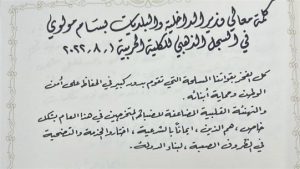 كلمة معالي وزير الداخلية والبلديات بسام مولوي
في السجل الذهبي للكلية الحربية ٢٠٢٢.٨.١
كل الفخر بقواتنا المسلحة التي تقوم بدور كبير في الحفاظ على أمن
الوطن وحماية أبنائه.
والتهنئة القلبية الصادقة لضباطنا المتخرجين في هذا العام بشكل
خاص، هم الذين، إيماناً بالشرعية، اختاروا الخدمة والتضحية
في الظروف الصعبة، لبناء الدولة.